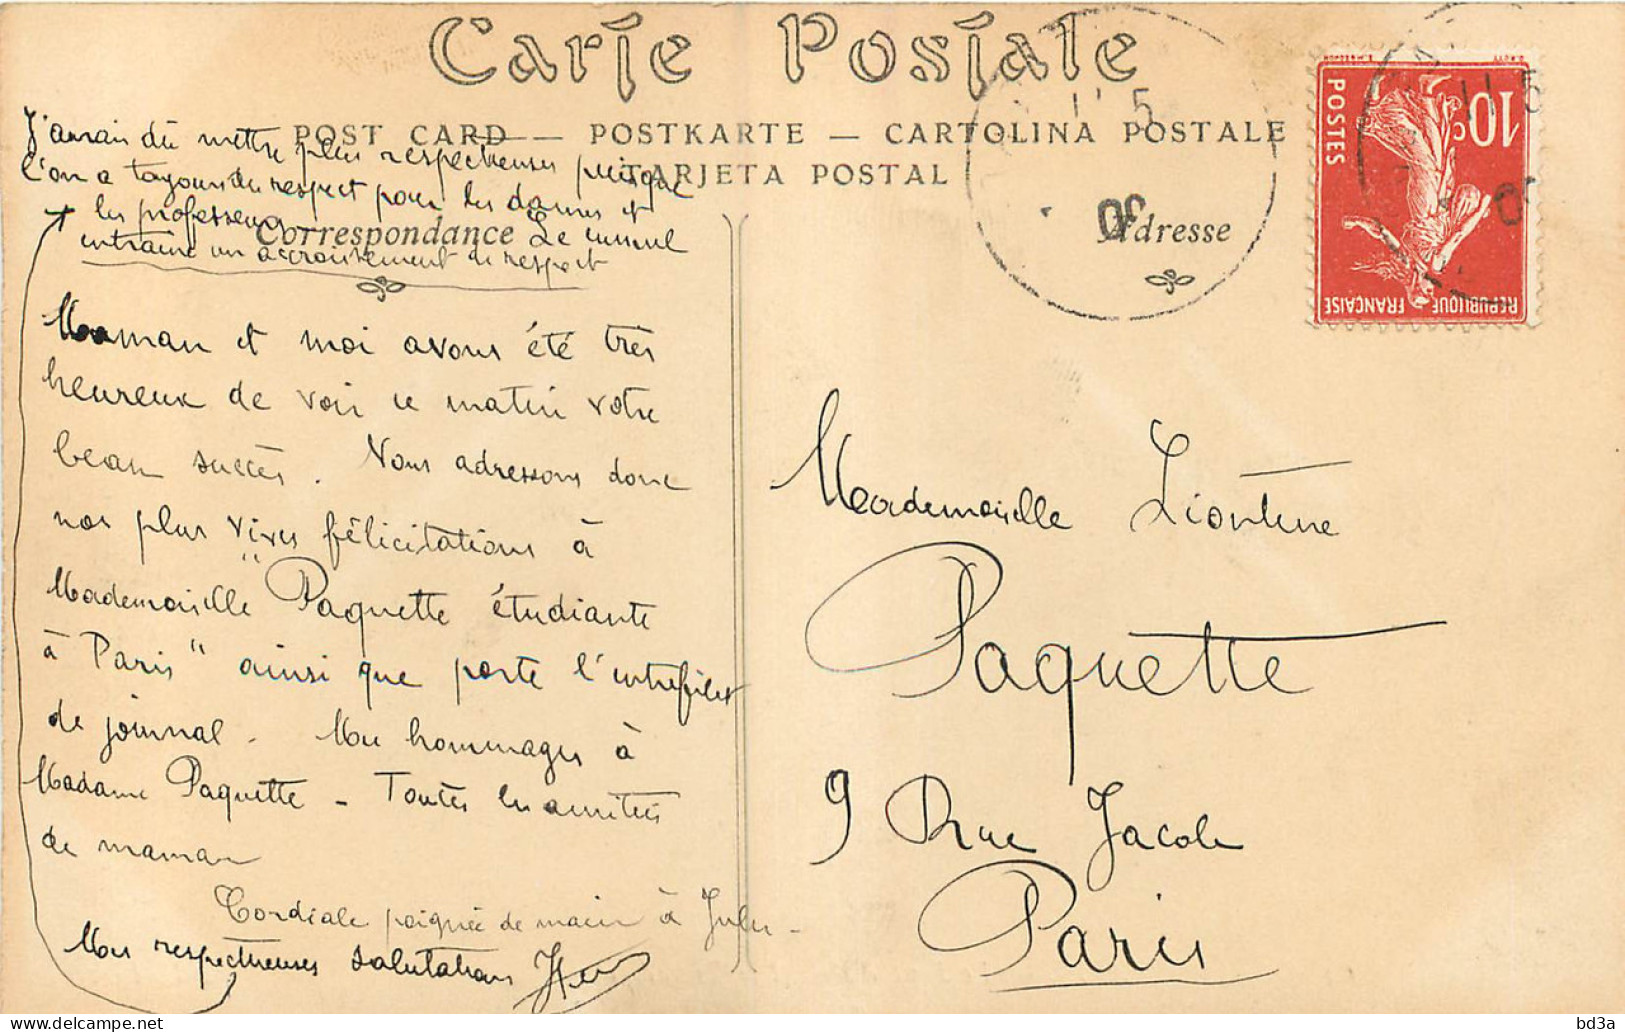 Carte Postale
POST CARD — POSTKARTE — CARTOLINA POSTALE
TARJETA POSTAL
Correspondance
Adresse
J'aurais dû mettre plus respectueuses puisque
l'on a toujours du respect pour les dames et
les professeurs Le cumul
entraine un accroissement de respect
Maman et moi avons été très
heureux de voir ce matin votre
beau succès. Nous adressons donc
nos plus vives félicitations à
Mademoiselle "Paquette étudiante
à Paris" ainsi que porte l'entrefilet
de journal. Mes hommages à
Madame Paquette - Toutes les amitiés
de maman
Cordiale poignée de main à Jules -
Mes respectueuses salutations
Mademoiselle Léontine
Paquette
9 Rue Jacob
Paris
11 5
11 5
10c
POSTES
REPUBLIQUE FRANÇAISE
bd3a